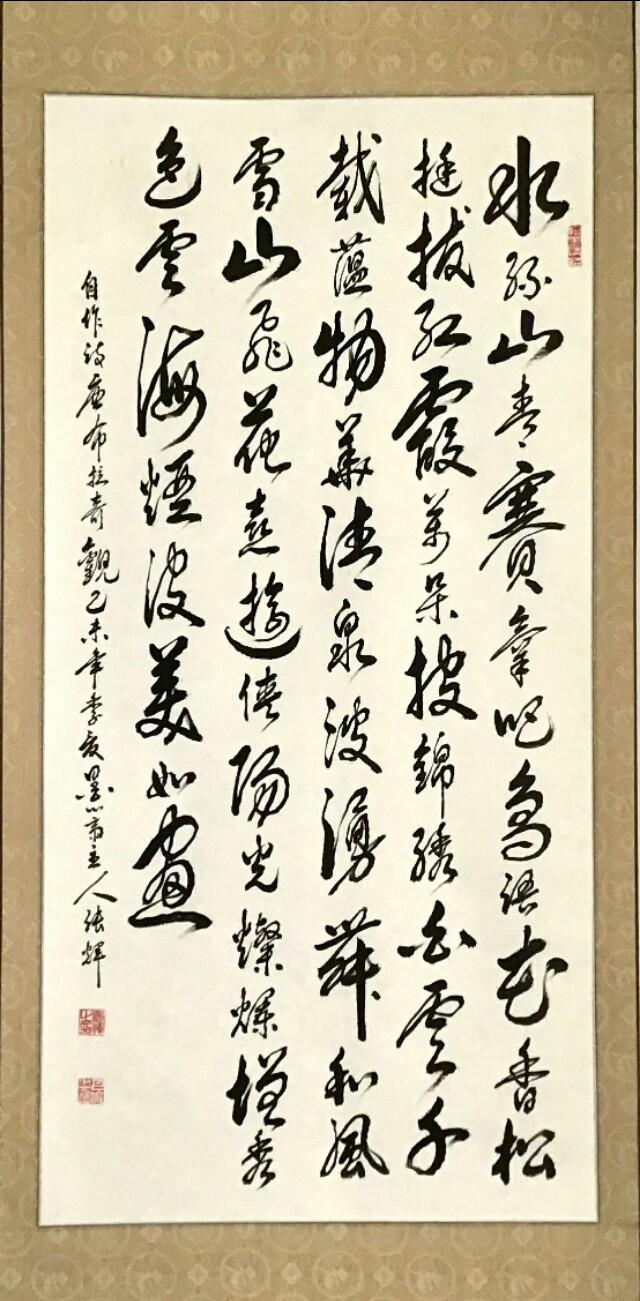 水綠山青賽氧吧鳥語花香松
挺拔紅霞萬朵披錦綉白雲千
載蘊物華清泉波湧舞和風
雪山飛花喜遊俠陽光燦爛增秀
色雲海煙波美如畫
自作詩唐布拉奇觀乙未年季夏墨齋主人張輝